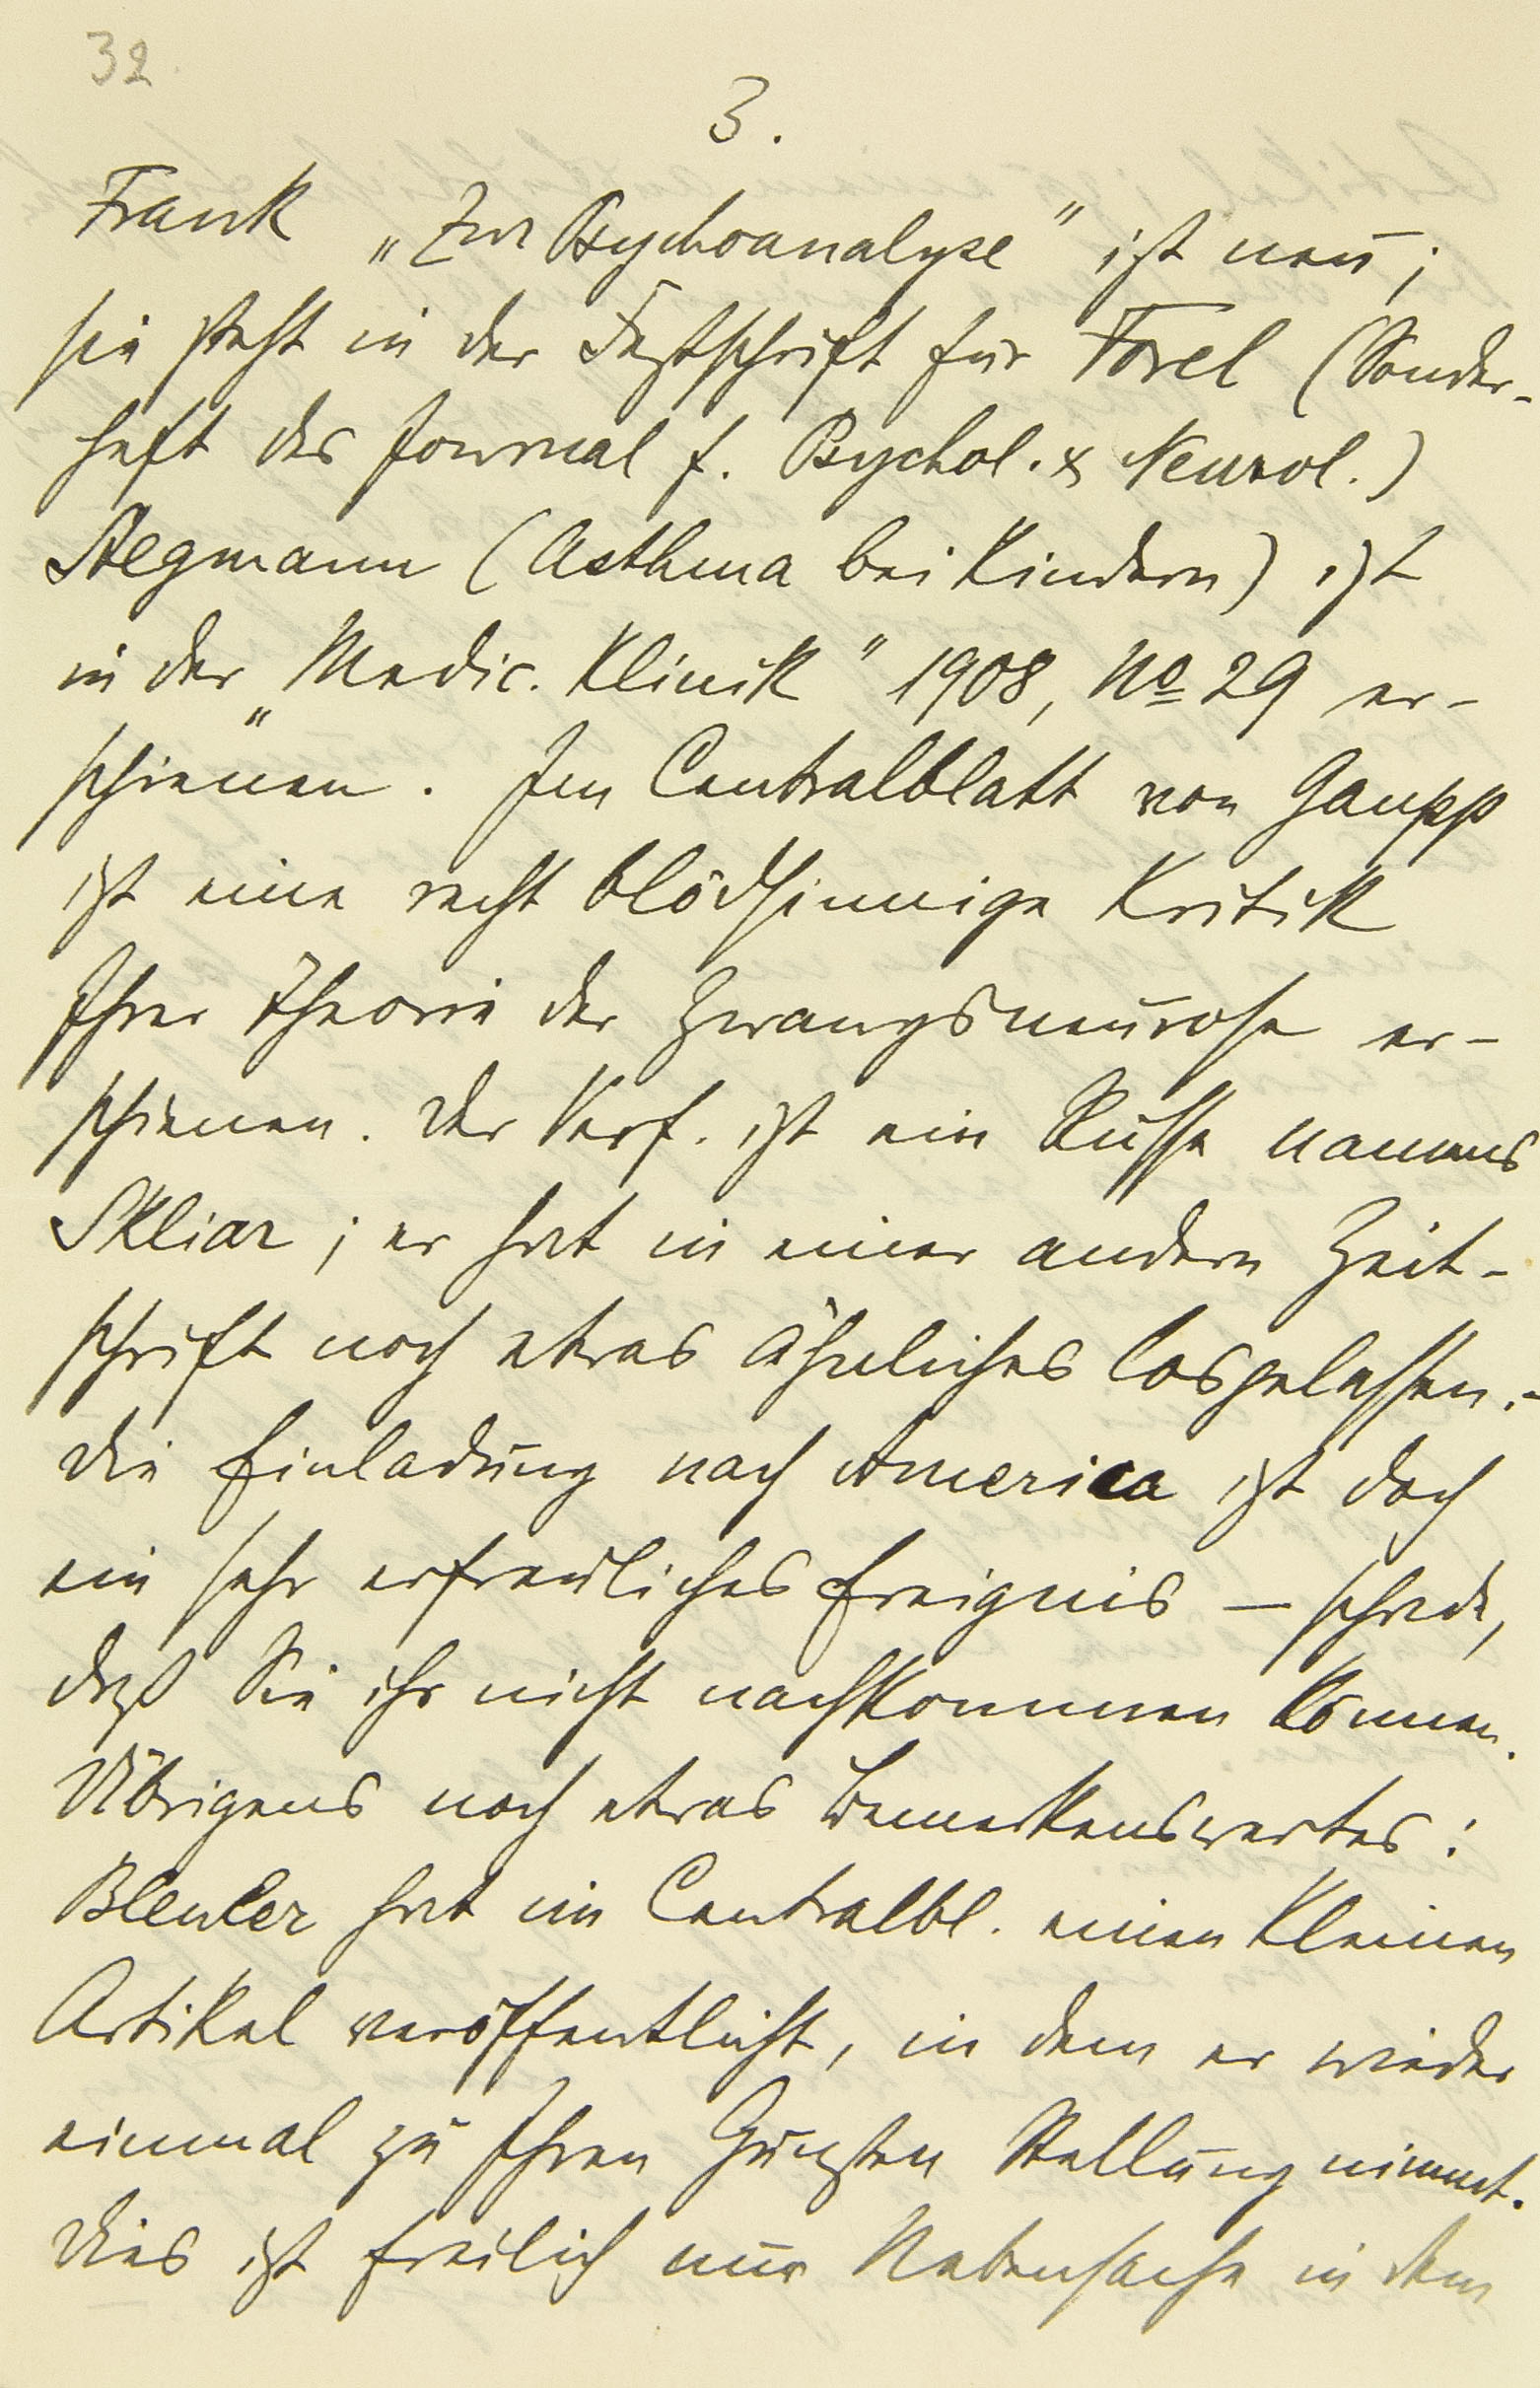 32
3.
Frank „Zur Psychoanalyse" ist neu;
sie steht in der Festschrift für Forel (Sonder-
heft des Journal f. Psychol. & Neurol.)
Stegmann (Asthma bei Kindern) ist
in der „Medic. Klinik" 1908, No 29 er-
schienen. Im Centralblatt von Gaupp
ist eine recht blödsinnige Kritik
Ihrer Theorie der Zwangsneurose er-
schienen. Der Verf. ist ein Russe namens
Skliar; er hat in einer andern Zeit-
schrift noch etwas Ähnliches losgelassen.-
Die Einladung nach America ist doch
ein sehr erfreuliches Ereignis — schade,
daß Sie ihr nicht nachkommen können.
Übrigens noch etwas Bemerkenswertes:
Bleuler hat im Centralbl. einen kleinen
Artikel veröffentlicht, in dem er wieder
einmal zu Ihren Gunsten Stellung nimmt.
Dies ist freilich nur Nebensache in dem